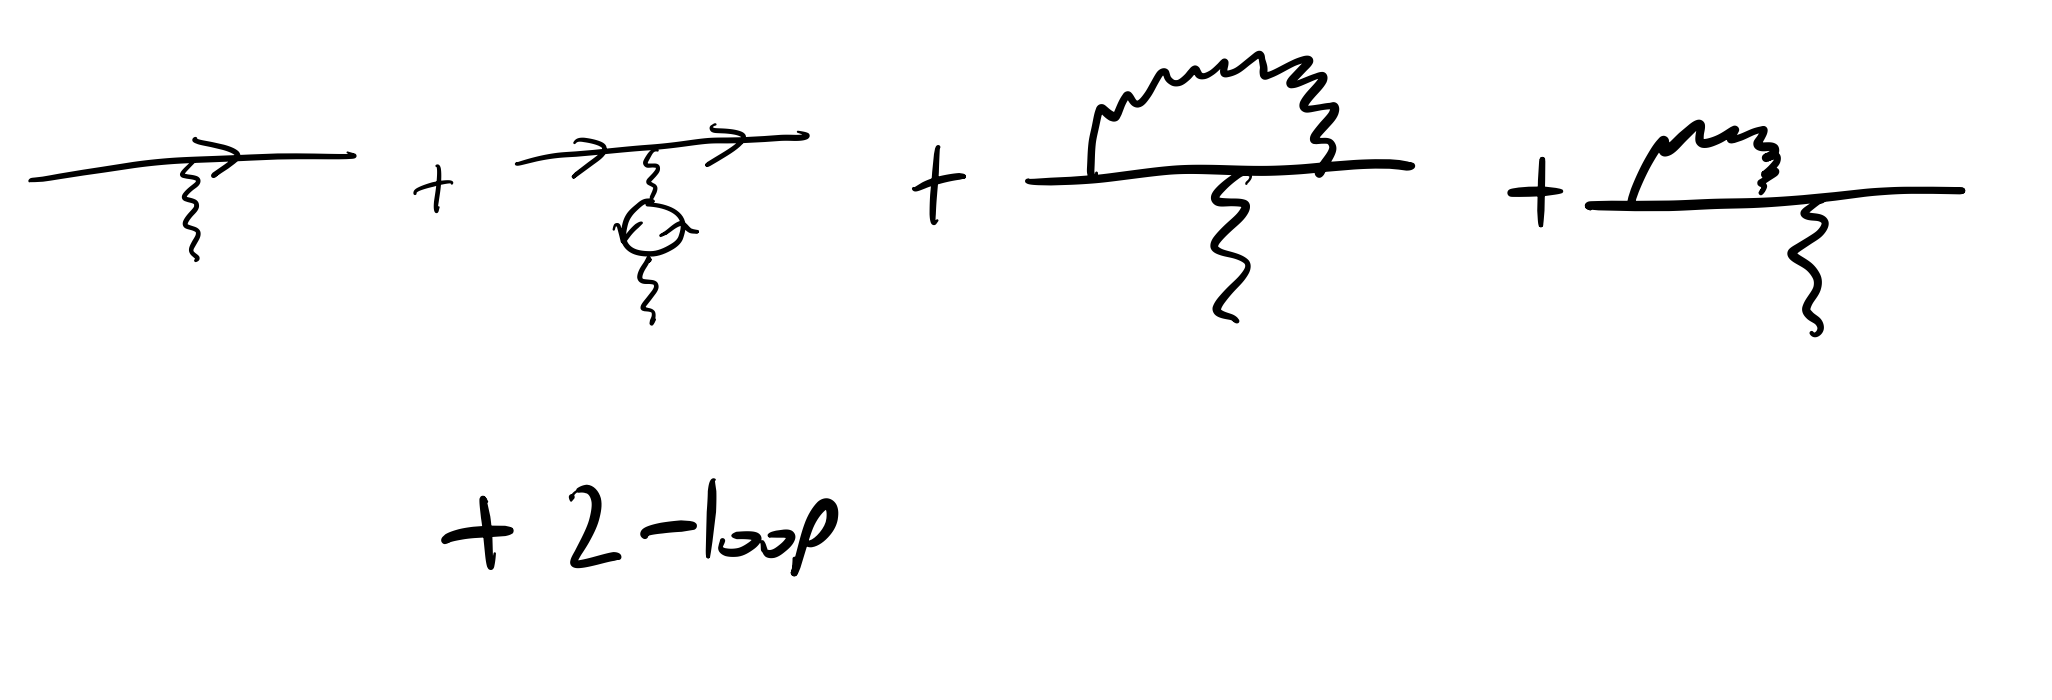 + + +
+ 2-loop